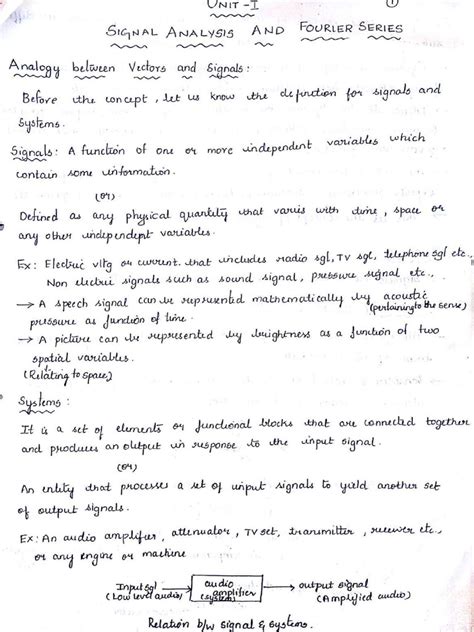 UNIT - I
①
SIGNAL ANALYSIS AND FOURIER SERIES
Analogy between Vectors and Signals:
Before the concept, let us know the definction for signals and
Systems.
Signals: A function of one or more independent variables which
contain some information.
(or)
Defined as any physical quantity that varies with time, space or
any other independent variables.
Ex: Electric vltg or current. that includes radio sgl, TV sgl, telephone sgl etc.,
Non electric signals such as sound signal, pressure signal etc.,
→ A speech signal can be represented mathematically by acoustic
(pertaining to the sense)
pressure as function of time.
→ A picture can be represented by brightness as a function of two
spatial variables.
(Relating to space)
Systems:
It is a set of elements or functional blocks that are connected together
and produces an output in response to the input signal.
(or)
An entity that processes a set of input signals to yield another set
of output signals.
Ex: An audio amplifier, attenuator, TV set, transmitter, receiver etc.,
or any engine or machine
Input sgl → audio amplifier → output signal
(Low level audio) (system) (Amplified audio)
Relation b/w signal & systems.